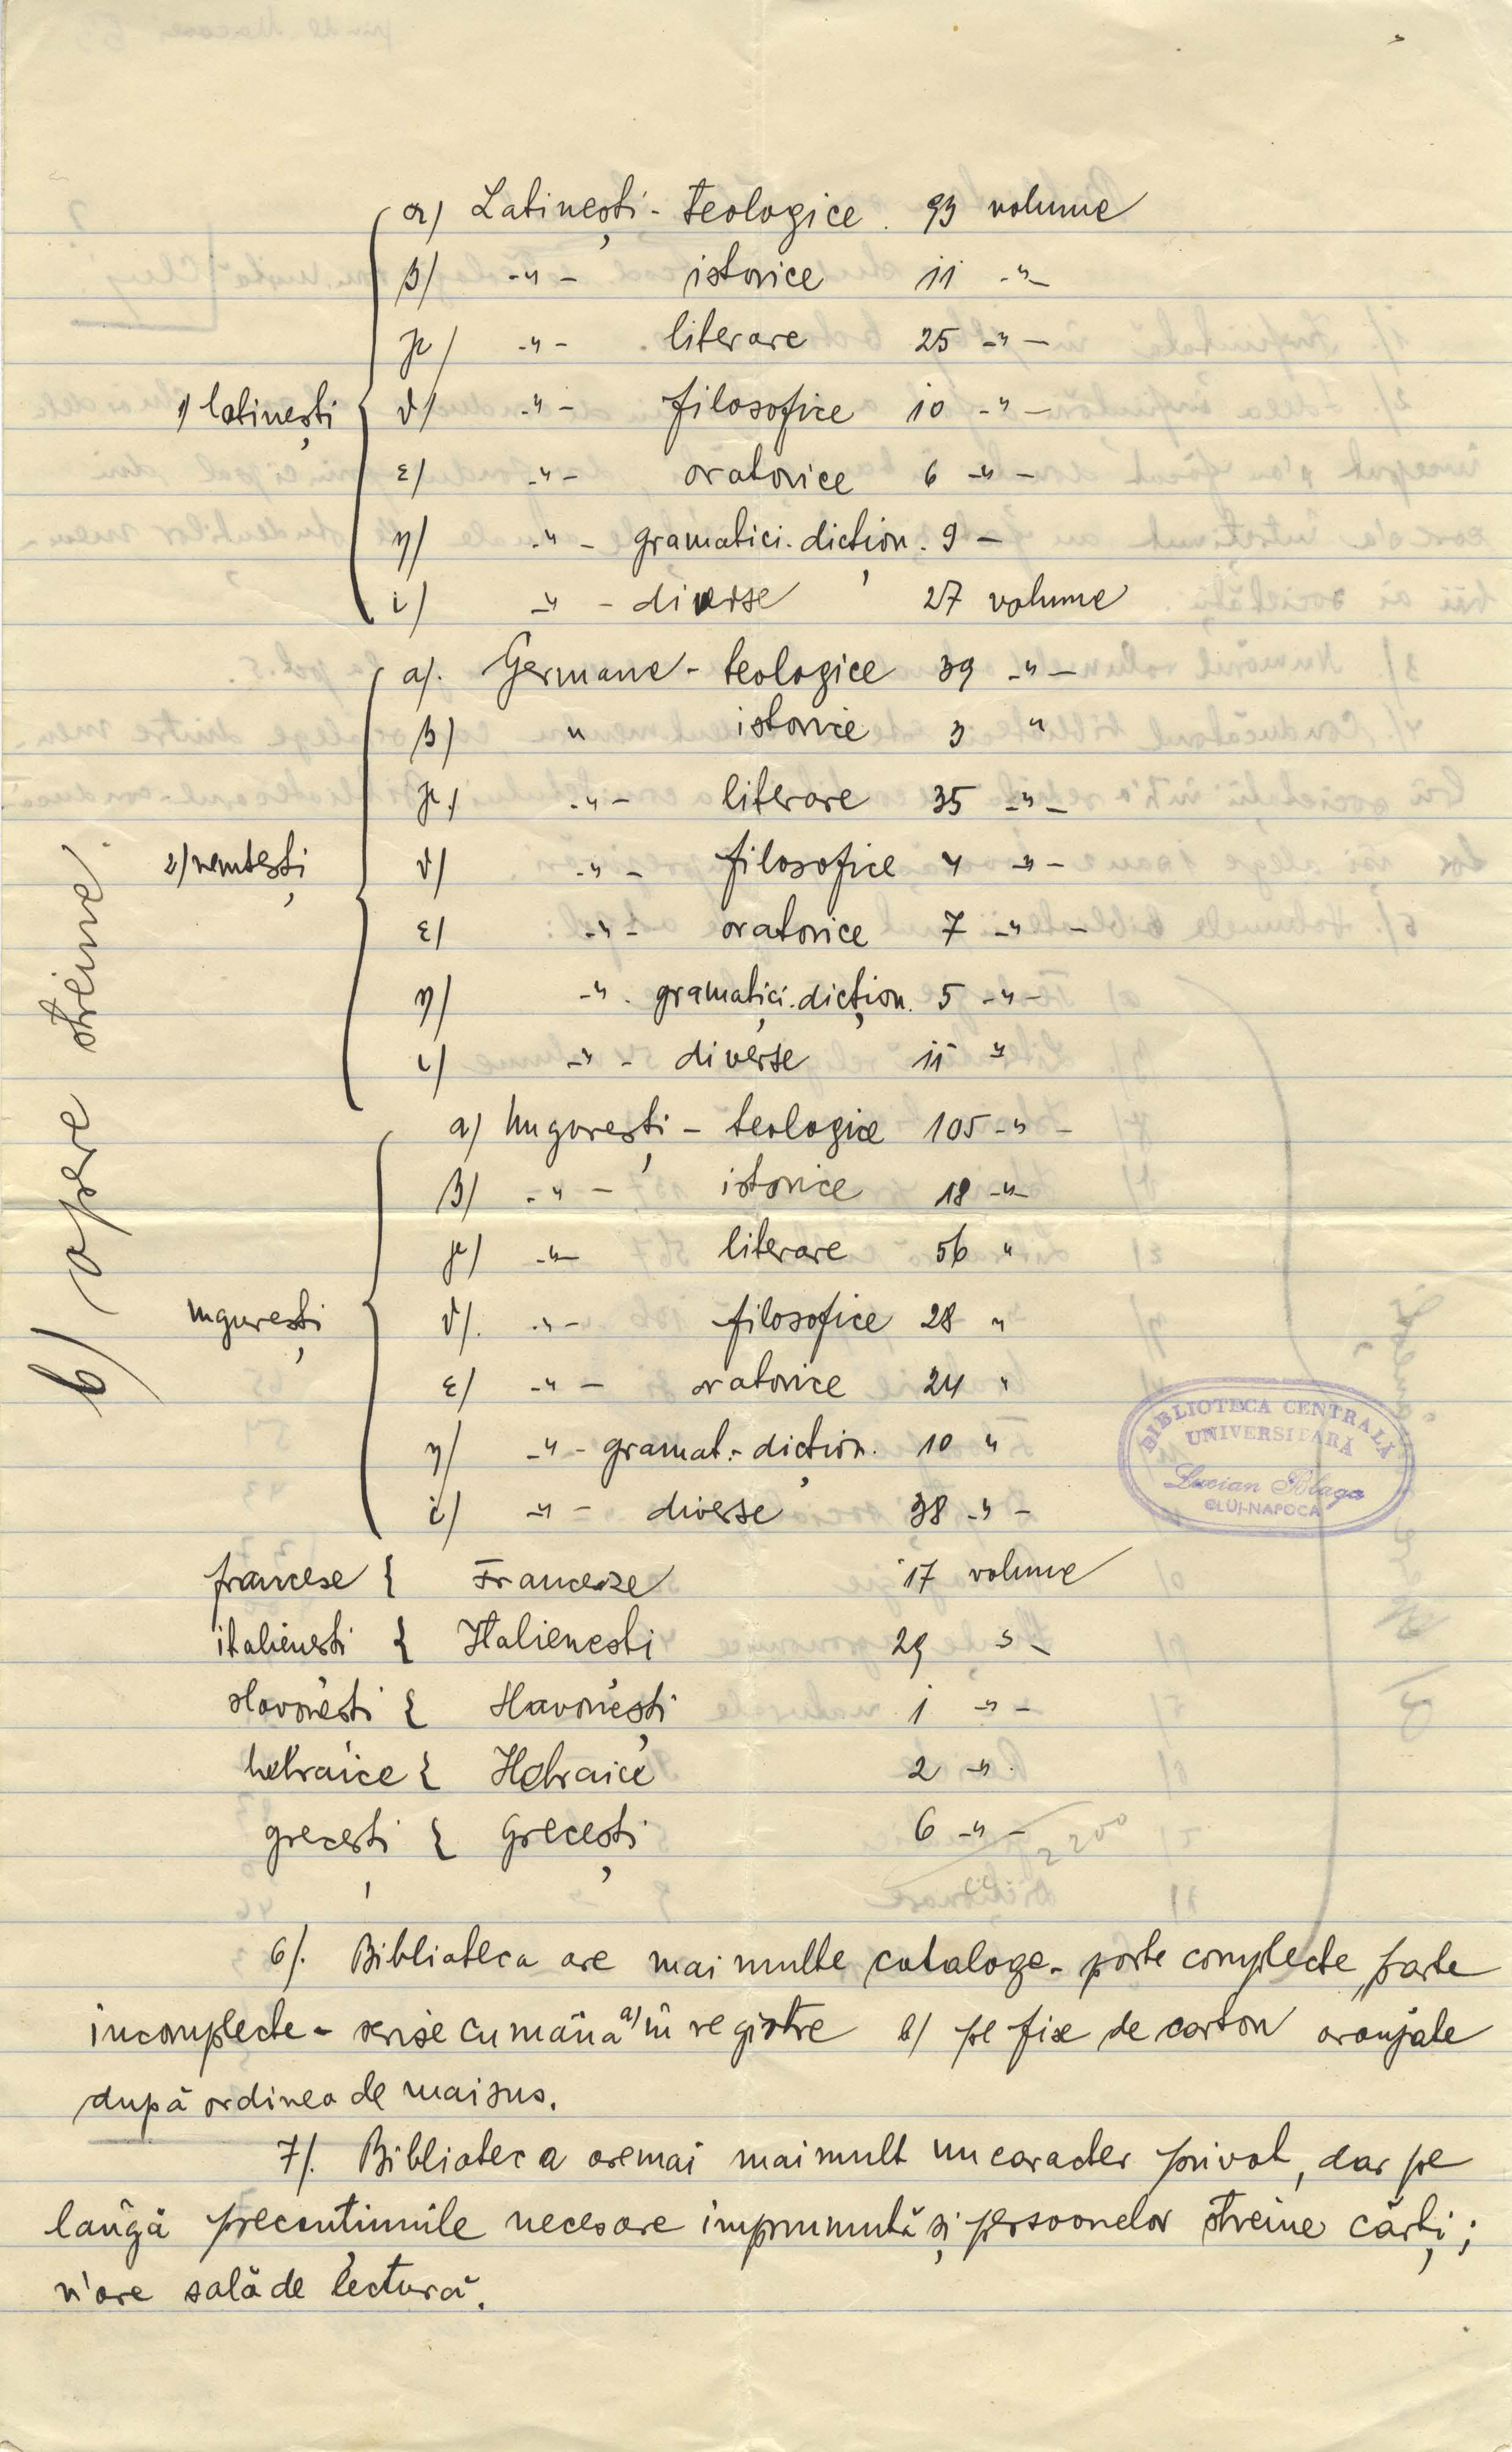 b) opere streine.
1) latinești
α) Latinești - teologice. 93 volume
β) -"- istorice 11 -"-
γ) -"- literare 25 -"-
δ) -"- filosofice 10 -"-
ε) -"- oratorice 6 -"-
η) -"- gramatici. dicțion. 9 -
ι) -"- diverse 27 volume
2) nemtești
α). Germane - teologice 39 -"-
β) " istorice 3 "
γ) -"- literare 35 -"-
δ) -"- filosofice 4 -"-
ε) -"- oratorice 7 -"-
η) -"- gramatici. dicțion. 5 -"-
ι) -"- diverse 11 "
ungurești
α) Ungurești - teologice 105 -"-
β) -"- istorice 18 -"-
γ) -"- literare 56 "
δ). -"- filosofice 28 "
ε) -"- oratorice 24 "
η) -"- gramat.- dicțion. 10 "
ι) -"- diverse 38 -"-
francese { Franceze 17 volume
italienesti { Italienesti 29 -"-
slavonesti { Slavonești 1 -"-
hebraice { Hebraice 2 -"-
grecești { Grecești 6 -"-
2200
BIBLIOTECA CENTRALĂ
UNIVERSITARĂ
Lucian Blaga
CLUJ-NAPOCA
6). Biblioteca are mai multe cataloge - parte complecte parte
incomplecte - scrise cu mâna a) în registre b) pe fixe de carton aranjate
după ordinea de mai sus.
7). Biblioteca are mai mai mult un caracter privat, dar pe
langă precauțiunile necesare imprumută și persoanelor streine cărți;
n'are sală de lectură.